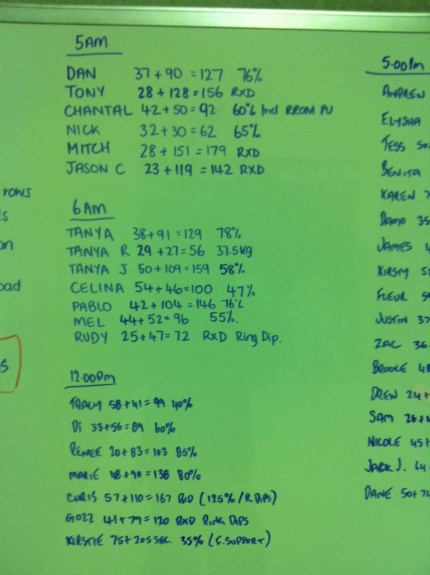 5AM
DAN 37+90=127 76%
TONY 28+128=156 RXD
CHANTAL 42+50=92 60% Incl RROM PU
NICK 32+30=62 65%
MITCH 28+151=179 RXD
JASON C 23+119=142 RXD
6AM
TANYA 38+91=129 78%
TANYA R 29+27=56 37.5kg
TANYA J 50+109=159 58%
CELINA 54+46=100 47%
PABLO 42+104=146 76%
MEL 44+52=96 55%.
RUDY 25+47=72 RXD Ring Dip.
12:00pm
TRACY 58+41=99 40%
Di 33+56=89 60%
RENEE 20+83=103 85%
MARIE 48+90=138 80%
CHRIS 57+110=167 RXD (125%/R.DIPS)
GOZZ 41+79=120 RXD RING DIPS
KIRSTIE 75+20SSEC. 35% (F.SUPPORT)
5:00pm
ANDREW
ELYSHA
TESS 50
BENITA
KAREN
DAMO 35
JAMES
KIRSTY
FLEUR
JUSTIN 37
ZAC 36
BROOKE 48
DREW 24+
SAM 26+
NICOLE 45+
JACK J. 64
DANE 50+
rows